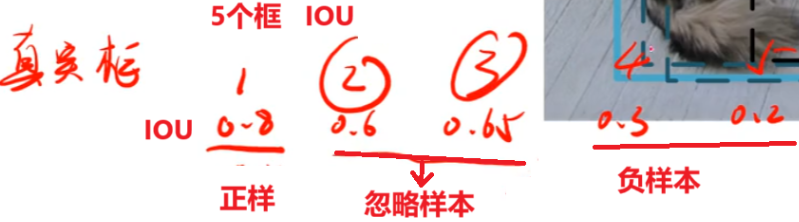 5个框 IOU
真实框 1 2 3 4 5
IOU 0.8 0.6 0.65 0.3 0.2
正样 忽略样本 负样本